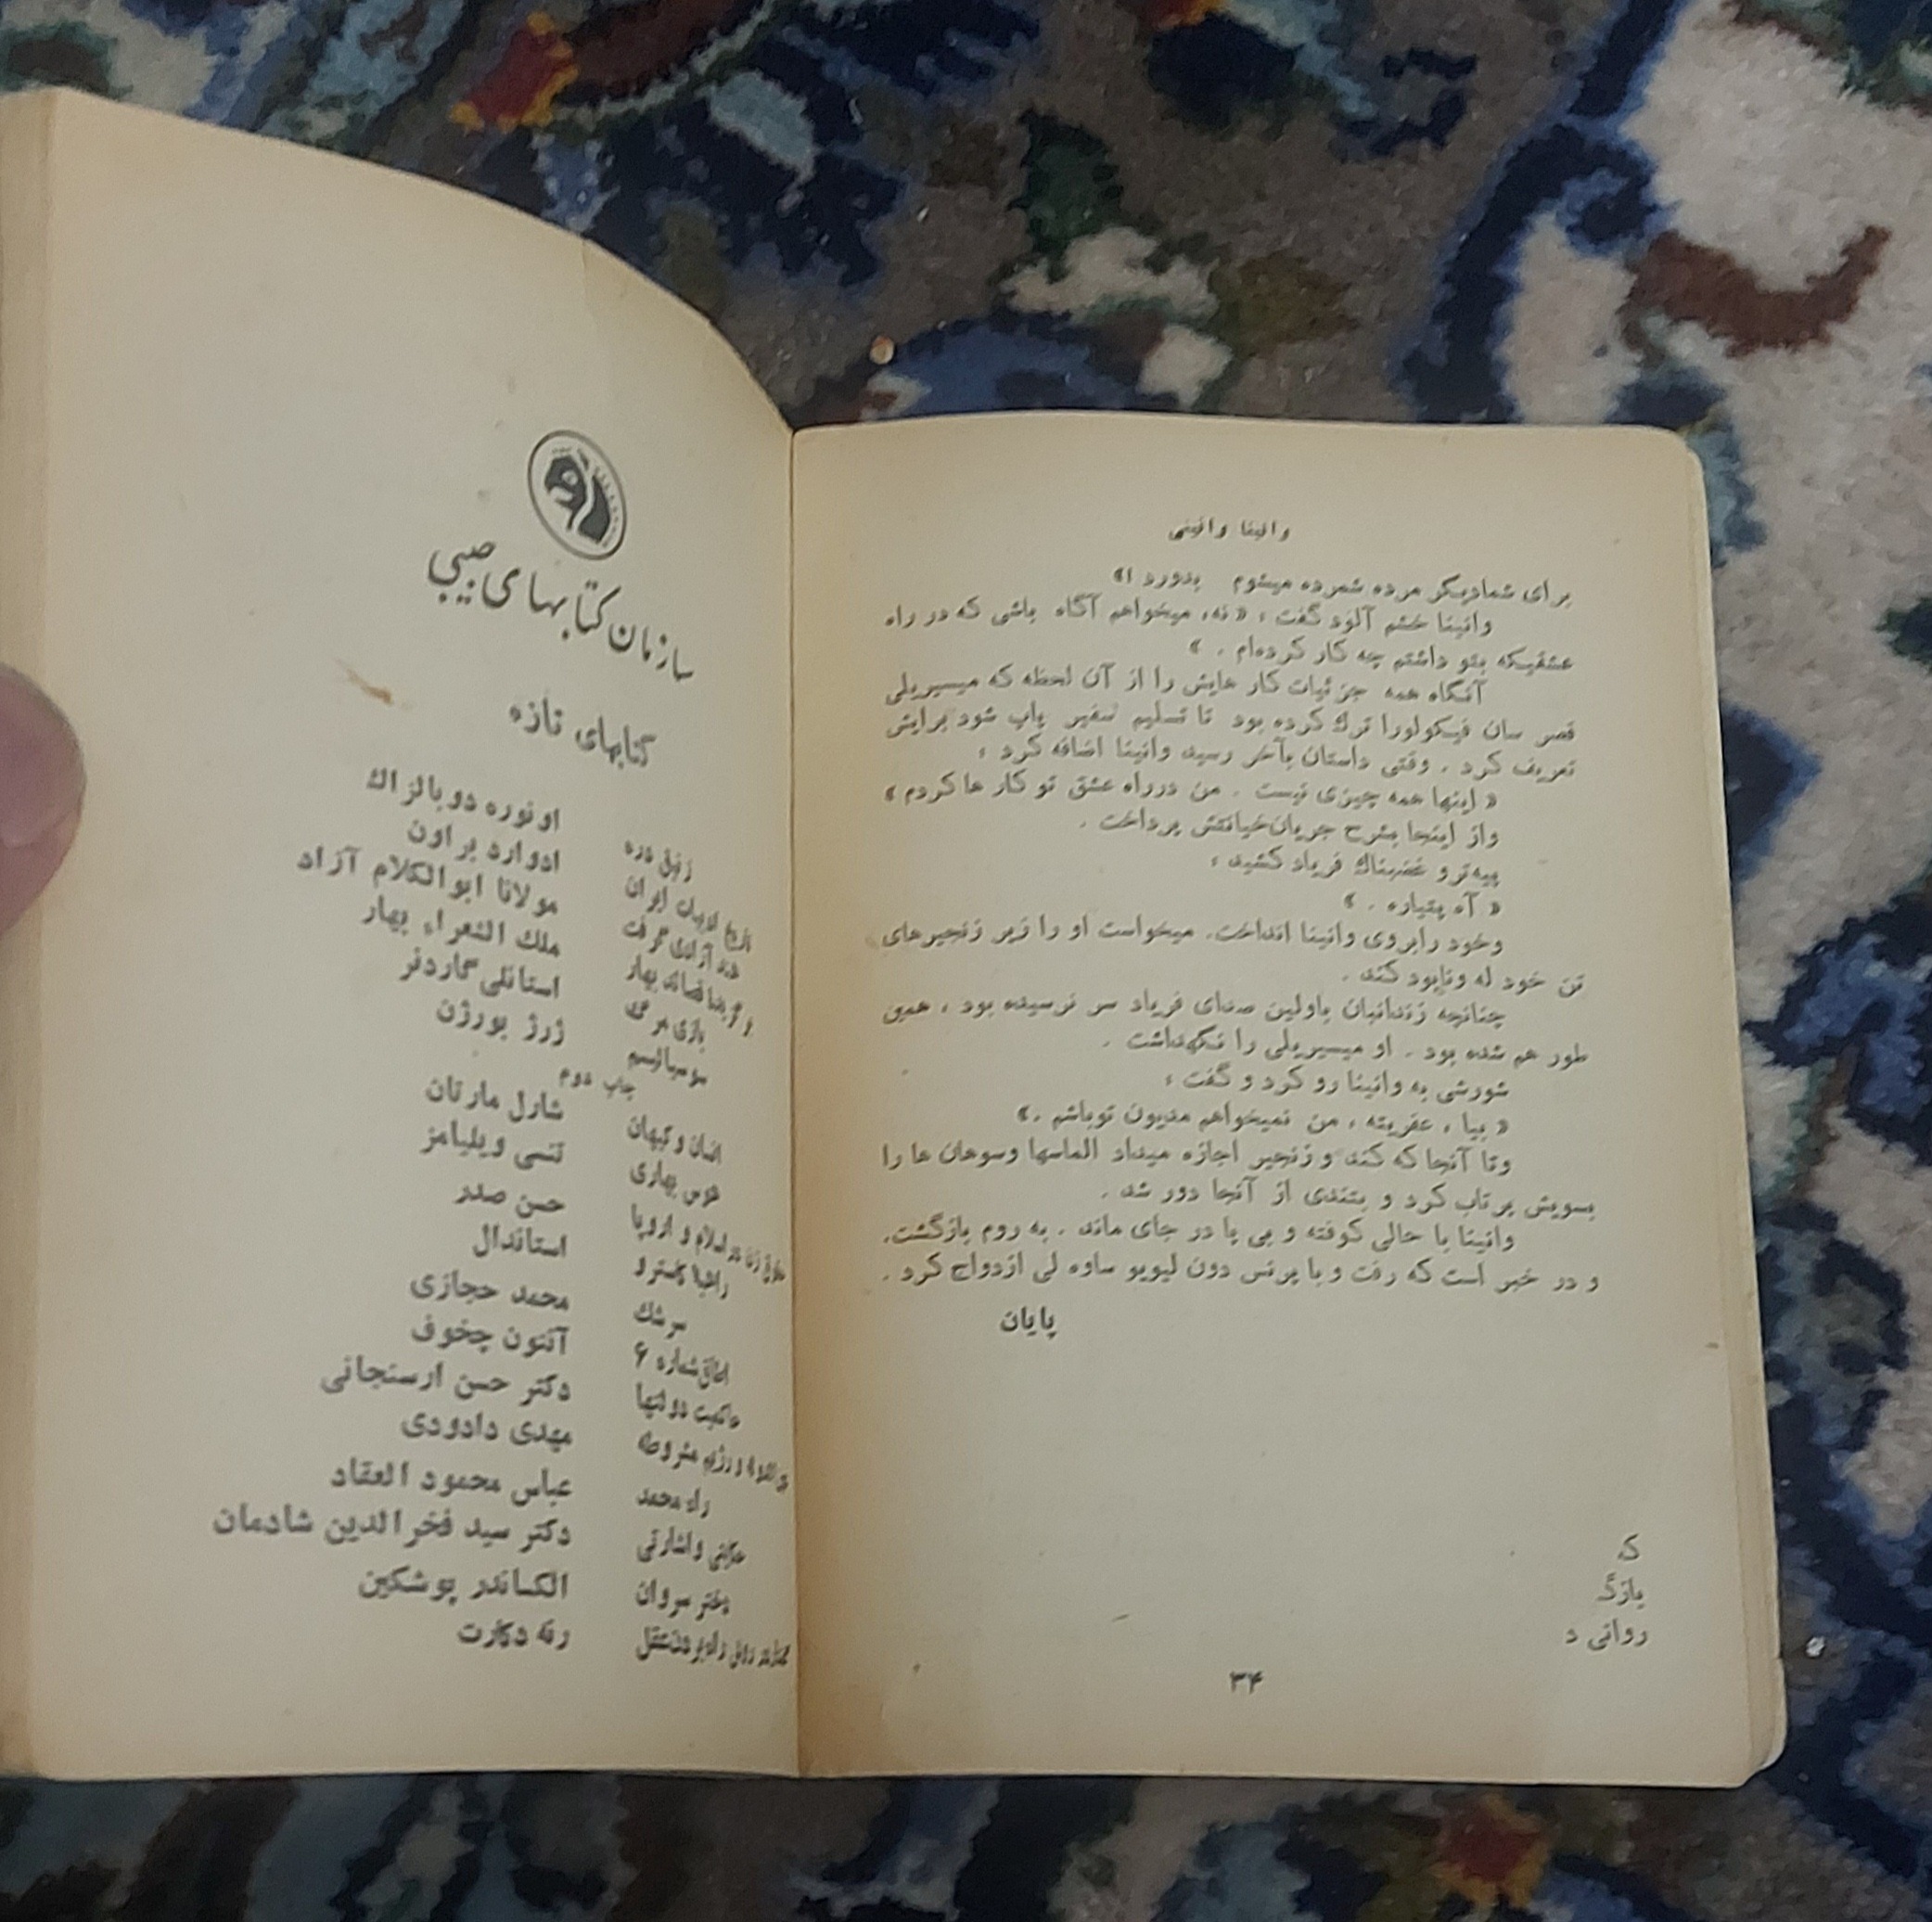 وانینا وانینی
برای شما دیگر مرده شمرده میشوم بدورد !»
وانینا خشم آلود گفت : « نه، میخواهم آگاه باشی که در راه
عشقیکه بتو داشتم چه کار کرده‌ام . »
آنگاه همه جزئیات کار هایش را از آن لحظه که میسیریلی
قصر سان نیکولورا ترك کرده بود تا تسلیم سفیر پاپ شود برایش
تعریف کرد . وقتی داستان بآخر رسید وانینا اضافه کرد :
« اینها همه چیزی نیست . من درراه عشق تو کار ها کردم »
واز اینجا بشرح جریان خیانتش پرداخت .
پیه‌ترو غضبناك فریاد کشید :
« آه پتیاره . »
وخود رابروی وانینا انداخت. میخواست او را زیر زنجیرهای
تن خود له ونابود کند .
چنانچه زندانبان باولین صدای فریاد سر نرسیده بود ، همین
طور هم شده بود . او میسیریلی را نگهداشت .
شورشی به وانینا رو کرد و گفت :
« بیا ، عفریته ، من نمیخواهم مدیون توباشم .»
وتا آنجا که کند و زنجیر اجازه میداد الماسها وسوهان ها را
بسویش پرتاب کرد و بتندی از آنجا دور شد .
وانینا با حالی کوفته و بی پا در جای ماند . به روم بازگشت.
و در خبر است که رفت و با پرنس دون لیویو ساوه لی ازدواج کرد .
پایان
که
بازگ
روانی د
۳۴
سازمان کتابهای جیبی
کتابهای تازه
زنبق دره اونوره دوبالزاك
تاریخ ادبیات ایران ادوارد براون
هند آزادی گرفت مولانا ابوالکلام آزاد
قصائد بهار ملك الشعراء بهار
بازی مرگ استانلی گاردنر
سوسیالیسم ژرژ بورژن
چاپ دوم
انسان و کیهان شارل مارتان
هوس بهاری تنسی ویلیامز
حقوق زن در اسلام و اروپا حسن صدر
راهبه کاسترو استاندال
سرشك محمد حجازی
اطاق شماره ۶ آنتون چخوف
حاکمیت دولتها دکتر حسن ارسنجانی
و رژیم مشروطه مهدی دادودی
راه محمد عباس محمود العقاد
حکایتی و اشارتی دکتر سید فخرالدین شادمان
دختر سروان الکساندر پوشکین
گفتار در روش راه بردن عقل رنه دکارت